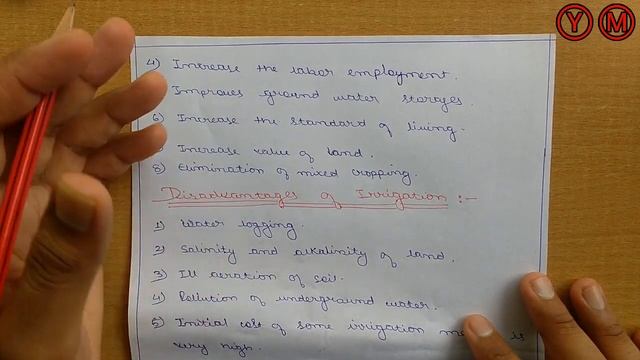 Y M
4) Increase the labor employment.
Improves ground water storages.
6) Increase the standard of living.
Increase value of land.
8) Elimination of mixed cropping.
Disadvantages of Irrigation :-
1) Water logging.
2) Salinity and alkalinity of land.
3) Ill aeration of soil.
4) Pollution of underground water.
5) Initial cost of some irrigation is
very high.